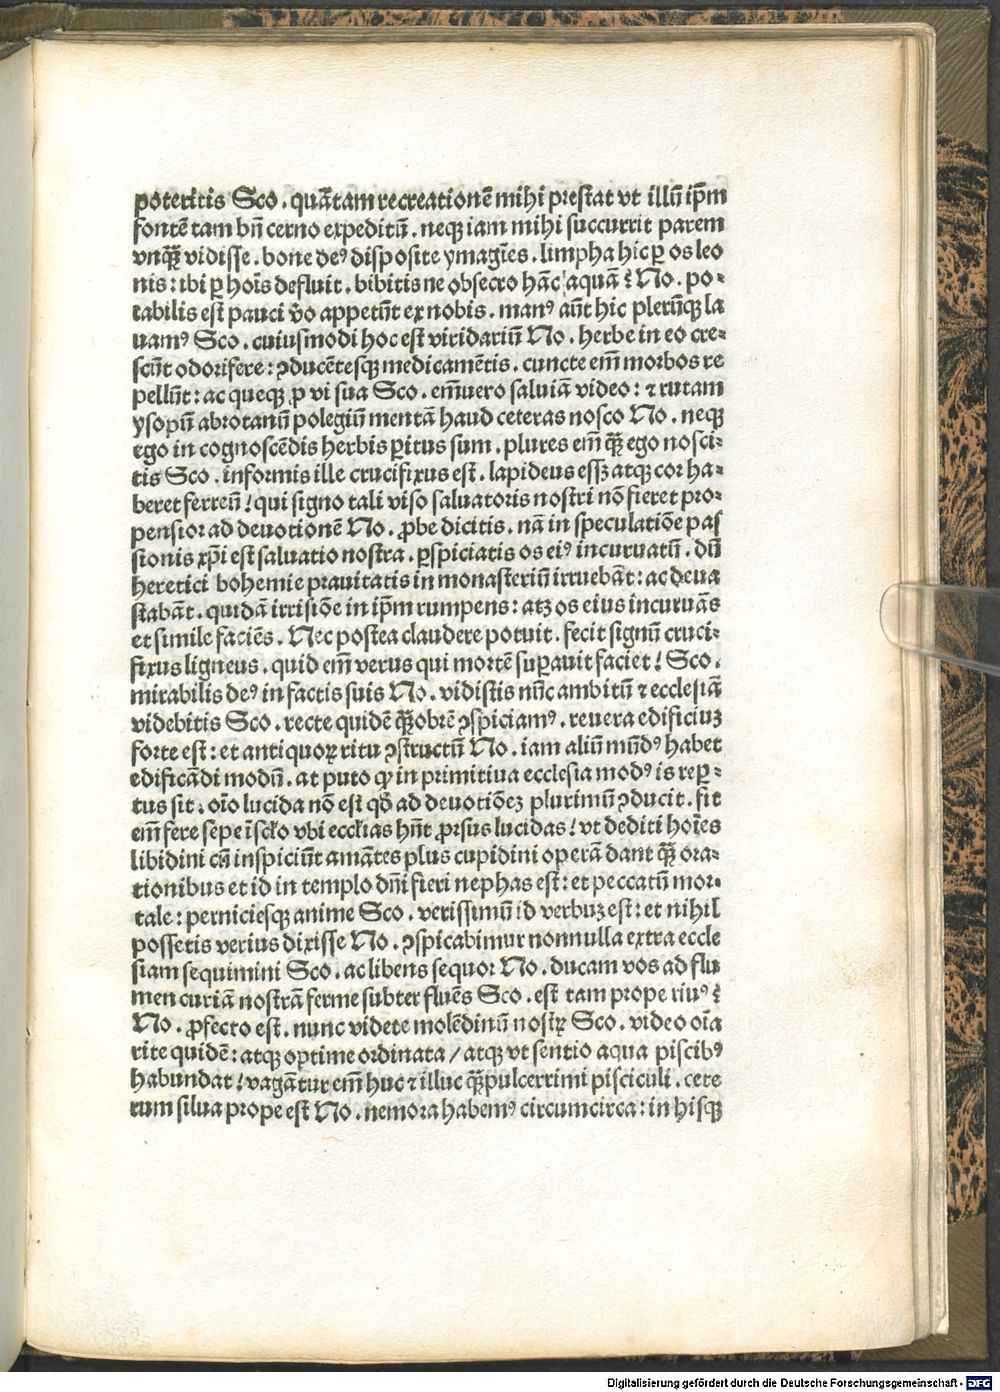 poteritis Sco. quãtam recreationẽ mihi prestat vt illũ ip̃m
fontẽ tam bñ cerno expeditũ. neqꝫ iam mihi succurrit parem
vnqꝫ̃ vidisse. bone deꝰ disposite ymagiẽs. limpha hic ꝑ os leo
nis: ibi ꝑ hoĩs defluit. bibitis ne obsecro hãc aquã? No. po-
tabilis est pauci ṽo appetũt ex nobis. manꝰ aũt hic plerũqꝫ la
uamꝰ Sco. cuiusmodi hoc est viridariũ No. herbe in eo cre-
scũt odorifere: ꝯducẽtesqꝫ medicamẽtis. cuncte em̃ morbos re
pellũt: ac queqꝫ ꝓ vi sua Sco. em̃uero saluiã video: ⁊ rutam
ysopũ abrotanũ polegiũ mentã haud ceteras nosco No. neqꝫ
ego in cognoscẽdis herbis ꝑitus sum. plures em̃ qꝫ̃ ego nosci-
tis Sco. informis ille crucifixus est. lapideus essꝫ atqꝫ cor ha-
beret ferreũ! qui signo tali viso saluatoris nostri nõ fieret pro-
pensior ad deuotionẽ No. ꝓbe dicitis. nã in speculatiõe pas
sionis xp̃i est saluatio nostra. ꝑspiciatis os eiꝰ incuruatũ. dũ
heretici bohemie prauitatis in monasteriũ irruebãt: ac deua
stabãt. quidã irrisiõe in ip̃m rumpens: atꝫ os eius incuruãs
et simile faciẽs. Nec postea claudere potuit. fecit signũ cruci-
fixus ligneus. quid em̃ verus qui mortẽ suꝑauit faciet! Sco.
mirabilis deꝰ in factis suis No. vidistis nũc ambitũ ⁊ ecclesiã
videbitis Sco. recte quidẽ qꝫ̃obrẽ ꝯspiciamꝰ. reuera edificiuꝫ
forte est: et antiquoꝝ ritu ꝯstructũ No. iam aliũ mũdꝰ habet
edificãdi modũ. at puto ꝙ in primitiua ecclesia modꝰ is reꝑ-
tus sit. oĩo lucida nõ est qð ad deuotiõeꝫ plurimũ ꝯducit. fit
em̃ fere sepe ĩ scl̃o vbi eccl̃ias hñt ꝓrsus lucidas! vt dediti hoĩes
libidini cũ inspiciũt amãtes plus cupidini operã dant qꝫ̃ ora-
tionibus et id in templo dñi fieri nephas est: et peccatũ mor-
tale: perniciesqꝫ anime Sco. verissimũ id verbuꝫ est: et nihil
possetis verius dixisse No. ꝯspicabimur nonnulla extra eccle
siam sequimini Sco. ac libens sequor No. ducam vos ad flu
men curiã nostrã ferme subter fluẽs Sco. est tam prope riuꝰ?
No. ꝓfecto est. nunc videte molẽdinũ nostꝝ Sco. video oĩa
rite quidẽ: atqꝫ optime ordinata / atqꝫ vt sentio aqua piscibꝰ
habundat! vagãtur em̃ huc ⁊ illuc qꝫ̃pulcerrimi pisciculi. cete
rum silua prope est No. nemora habemꝰ circumcirca: in hisqꝫ
Digitalisierung gefördert durch die Deutsche Forschungsgemeinschaft - DFG